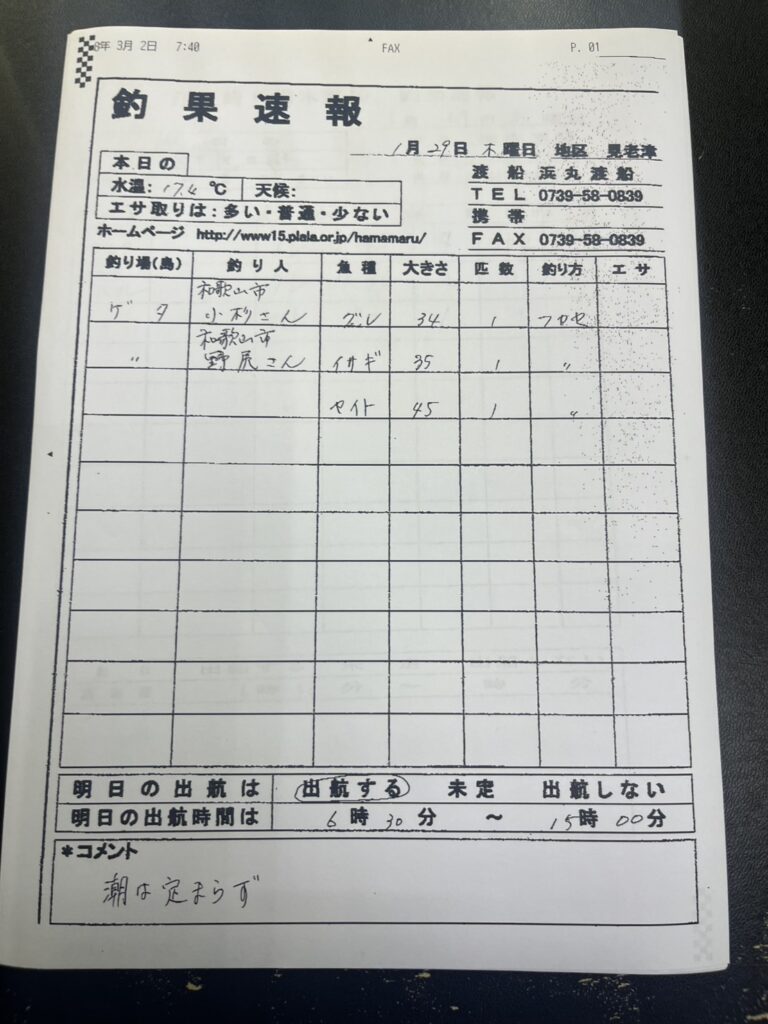 8年 3月 2日 7:40 FAX P. 01
釣果速報
1月29日 木曜日 地区 見老津
本日の
水温: 17.4 ℃ 天候:
エサ取りは: 多い・普通・少ない
渡船 浜丸渡船
TEL 0739-58-0839
携帯
FAX 0739-58-0839
ホームページ http://www15.plala.or.jp/hamamaru/
釣り場(島) 釣り人 魚種 大きさ 匹数 釣り方 エサ
和歌山市
ゲタ 小杉さん グレ 34 1 フカセ
和歌山市
〃 野尻さん イサギ 35 1 〃
セイト 45 1 〃
明日の出航は 出航する 未定 出航しない
明日の出航時間は 6時30分 ～ 15時00分
*コメント
潮は定まらず